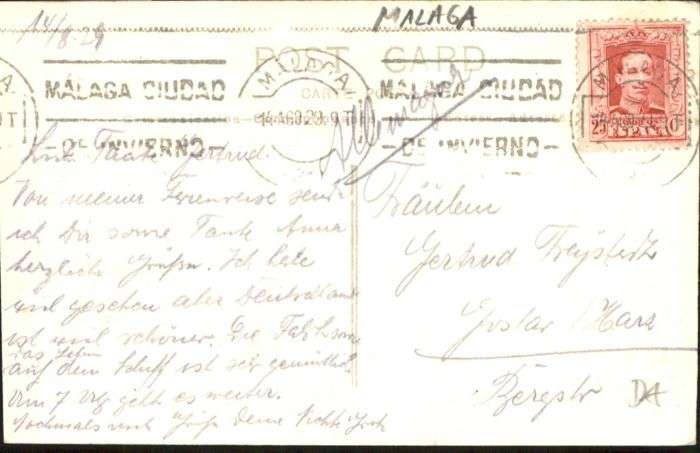 14/8.29
MALAGA
POST CARD
MÁLAGA CIUDAD
DE INVIERNO
MÁLAGA
14 AGO 29
MÁLAGA CIUDAD
DE INVIERNO
25
Tante Gertrud.
Von meiner Ferienreise sende
ich Dir sowie Tante Anna
herzlich Grüße. Ich habe
viel gesehen aber Deutschland
ist viel schöner. Die Fahrt sowie
das Leben
auf dem Schiff ist sehr gemütlich
Um 7 Uhr geht es weiter.
Nochmals viel Grüße Deine Nichte
Fräulein
Gertrud
Goslar Harz
Bergstr